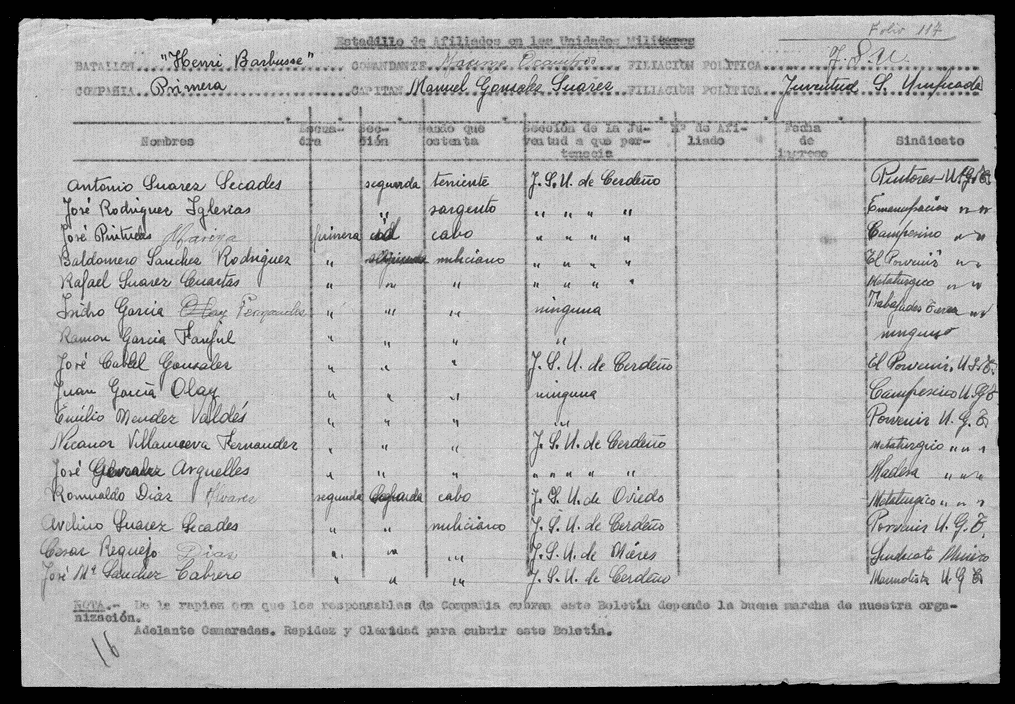 Folio 117
Estadillo de Afiliados en las Unidades Militares
BATALLON "Henri Barbusse" COMANDANTE FILIACIÓN POLÍTICA J. S. U.
COMPAÑIA Primera CAPITAN Manuel Gonzalez Suárez FILIACIÓN POLÍTICA Juventud S. Unificada
Nombres Escuadra Sección Mando que ostenta Sección de la Juventud a que pertenecia Nº de Afiliado Fecha de ingreso Sindicato
Antonio Suarez Secades segunda teniente J. S. U. de Cerdeño Pintores U.G.T.
José Rodriguez Iglesias " sargento " " " " Emancipacion " "
José Marina primera id cabo " " " " Campesino " "
Baldomero Sanchez Rodriguez " miliciano " " " " El Porvenir " "
Rafael Suarez Cuartas " " " " " " " Metalurgico " "
Isidro Garcia Fernandes " " " ninguna " "
Ramon Garcia Fanjul " " " " ninguno
José Gonzalez " " " J. S. U. de Cerdeño El Porvenir U.G.T.
Juan García Olay " " " ninguna Campesino U G T
Emilio Mendez Valdés " " " " Porvenir U. G. T.
Nicanor Villanueva Fernandez " " " J. S. U. de Cerdeño Metalurgico " " "
José Gonzalez Arguelles " " " " " " " Madera " " "
Romualdo Dias Alvarez segunda segunda cabo J. S. U. de Oviedo Metalurgico " " "
Avelino Suarez Secades " " miliciano J. S. U. de Cerdeño Porvenir U. G. T.
Cesar Requejo Dias " " " J. S. U. de Mieres Sindicato Minero
José Mª Sanchez Cabrero " " " J. S. U. de Cerdeño Marmolista U G T
NOTA.- De la rapiez con que los responsables de Compañia cubran este Boletín depende la buena marcha de nuestra orga-
nización.
Adelante Camaradas. Rapidez y Claridad para cubrir este Boletín.
16